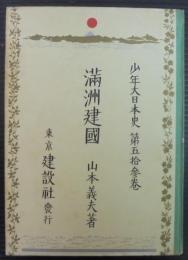 少年大日本史 第五拾參卷
滿洲建國
山本義夫著
東京 建設社 發行